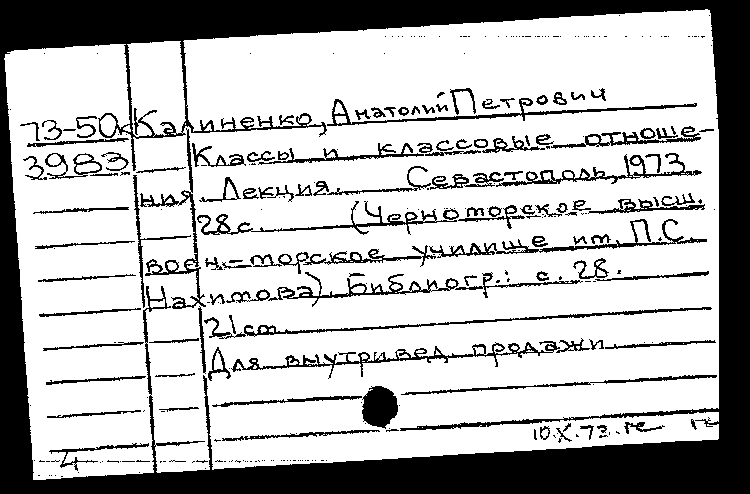 73-50к Калиненко, Анатолий Петрович
3983 Классы и классовые отноше-
ния. Лекция. Севастополь, 1973
28с. (Черноморское высш.
воен.-морское училище им. П.С.
Нахимова). Библиогр.: с. 28.
21cm.
Для внутривед. продажи.
10.X.73.
4